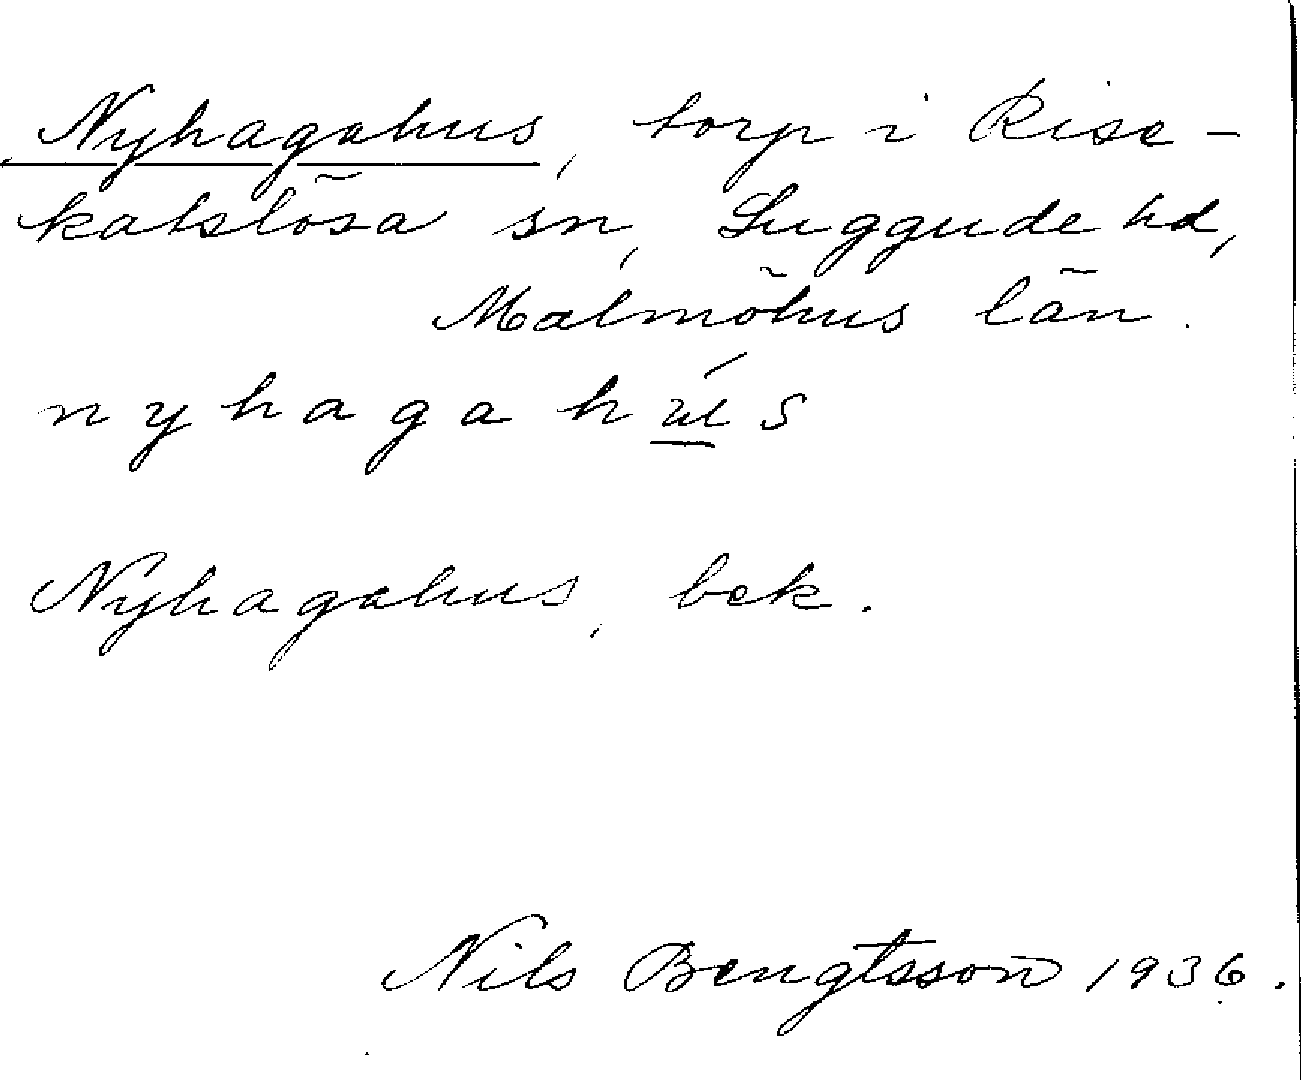 Nyhagahus, torp i Rise-
katslösa sn, Luggude hd,
Malmöhus län.
nyhagahús
Nyhagahus, bek.
Nils Bengtsson 1936.